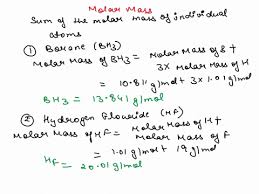 Molar Mass
Sum of the molar mass of individual
atoms
① Borane (BH3)
Molar Mass of BH3 = Molar Mass of B +
3x Molar Mass of H
= 10.811 g/mol + 3x 1.01 g/mol
BH3 = 13.841 g/mol
② Hydrogen Flouride (HF)
Molar Mass of HF = Molar Mass of H +
Molar Mass of F
= 1.01 g/mol + 19 g/mol
HF = 20.01 g/mol